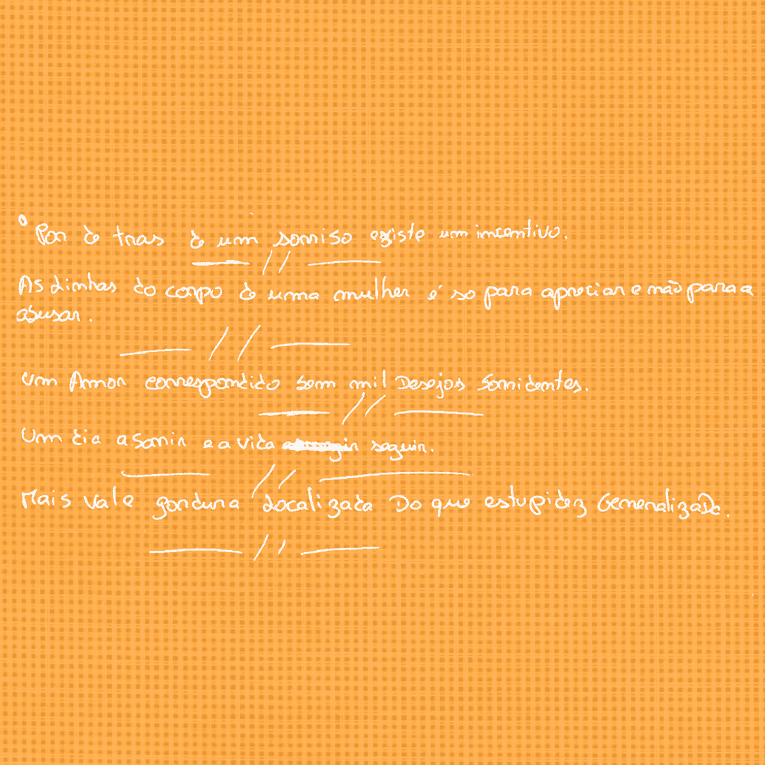 Por de tras de um sorriso existe um incentivo.
As Linhas do corpo de uma mulher é so para apreciar e não para a
abusar.
Um Amor correspondido sem mil Desejos Sorridentes.
Um dia a Sorrir e a vida seguir.
Mais vale gordura Localizada Do que estupidez GeneralizaDa.